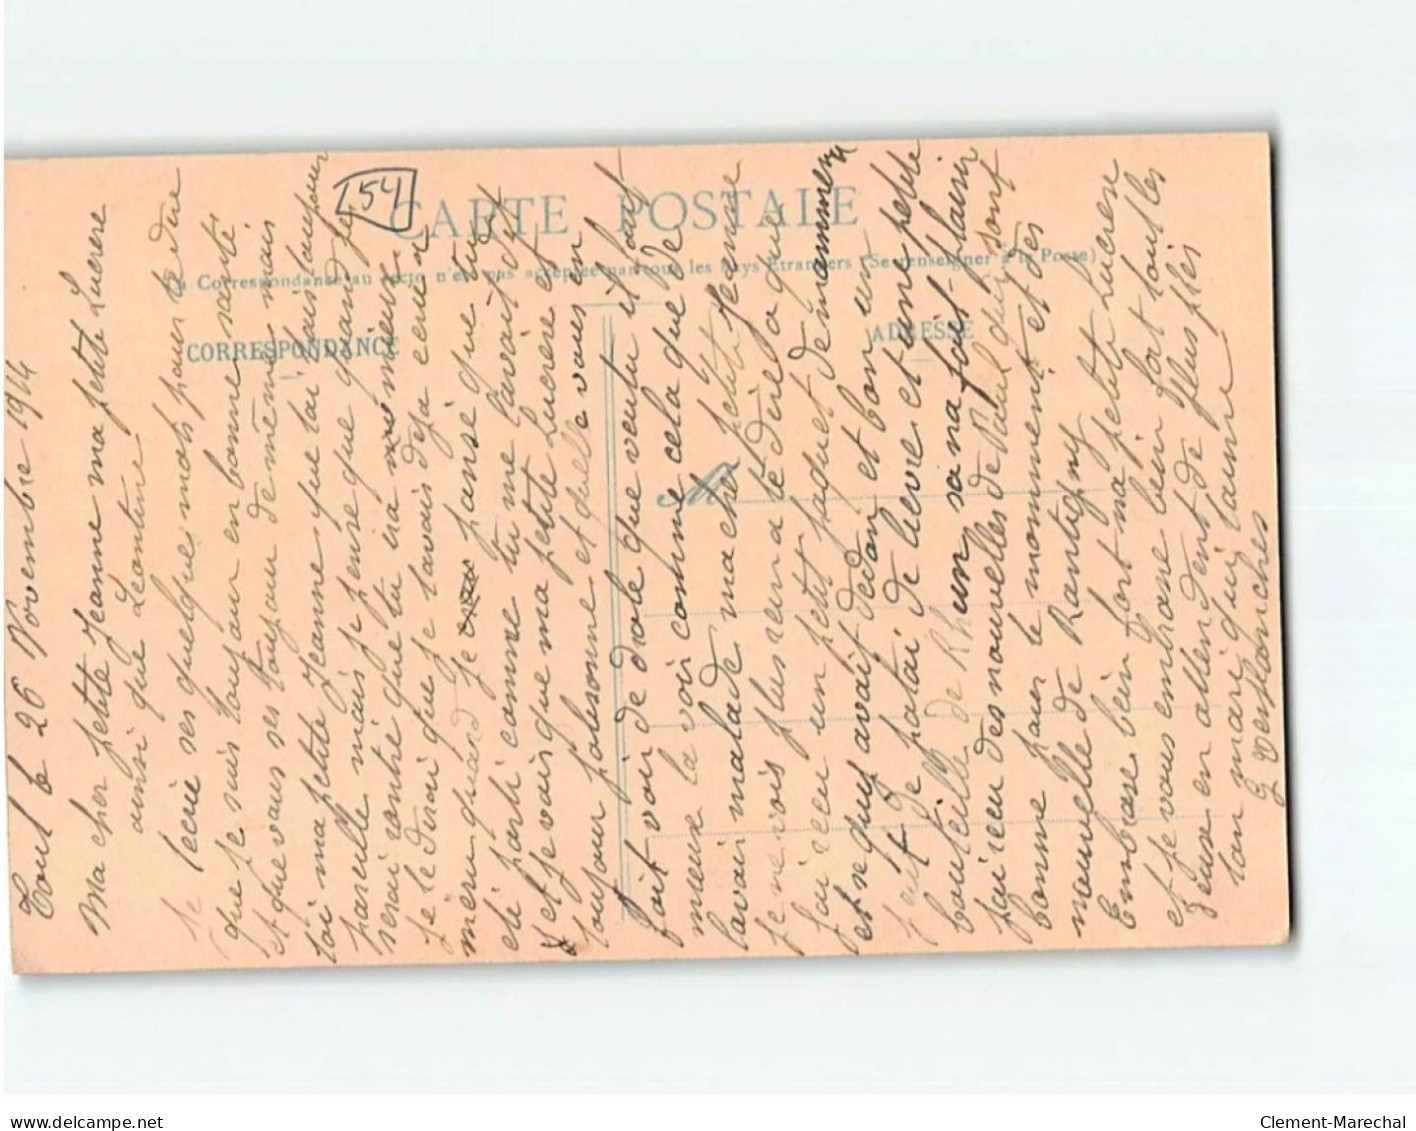 CARTE POSTALE
La Correspondance au recto n'est pas acceptée par tous les Pays Étrangers (Se renseigner à la Poste)
CORRESPONDANCE
ADRESSE
54
Toul le 26 Novembre 1914
Ma cher petite Jeanne ma petite Lucrere
ainsi que Leontine
Je técrie ses quelque mots pour te dire
que je suis toujour en bonne santé
et que vous ses toujour de même mais
toi ma petite Jeanne que toi tais toujour
pareille mais je pense que quand je
serai rentré que tu ira mieux
Je le dirai que je lavais déja écrie a
quand je panse que tu
été parti comme tu me lavait dit
et je vois que ma petite Lucrere et
toujour polisonne et quelle vous en
fait voir de drole que veutu il faut
mieux la voir comme cela que de
lavoir malade ma cher petite femme
je ne vois plus rien a te dire a que
jai reçu un petit paquet de
et se quil avait dedan et bon un
peut de patai de lievre et une petite
bouteille de Rhum sa ma fait plaisir
jai reçu des nouvelles de Paul qui sont
bonne pour le momment et des
nouvelle de Rantigny
Embrase bien fort ma petite Lucrere
et je vous embrase bien fort tout les
deux en attendent de plus
ton mari qui taime